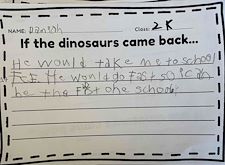 NAME: Daniah Class: 2 K
If the dinosaurs came back...
He would take me to school
He would go fast so I can
be the Fast one school